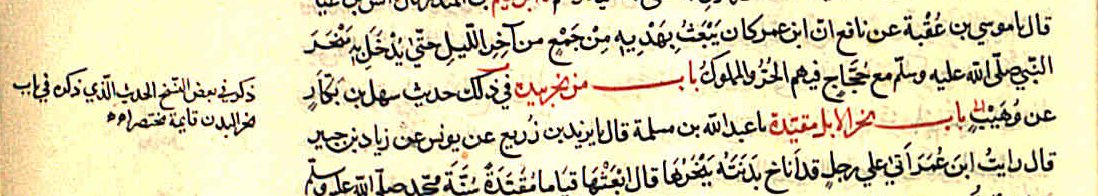 قال نا موسي بن عُقْبة عن نافع انّ ابن عمر كان يَبْعَثُ بِهَدْيِهِ مِنْ جَمْعٍ من آخِرِ اللّيلِ حتّي يُدْخَلَ بِهِ مَنْحَرَ
النّبيّ صلّي الله عليه وسلّم مع حُجَّاجٍ فيهم الحُرُّ والمملوكُ باب من نحر بيده في ذلك حديث سهل بن بَكَّارٍ
عن وُهَيْبٍ باب نحر الابل مقيّدة نا عبد الله بن مسلمة قال نا يزيد بن زُرَيع عن يونس عن زياد بن جبير
قال رايتُ ابنَ عُمَرَ اَتي علي رجلٍ قد اَناخَ بَدَنَتَهُ يَنْحَرُهَا قال ابْعَثْهَا قِيَامًا مُقَيَّدَةً سُنَّةَ محمّد صلّي الله عليه وسلّم
ذكر في بعض النسخ الحديث الّذي ذكره في باب
نحر البدن قايمة مختصرا